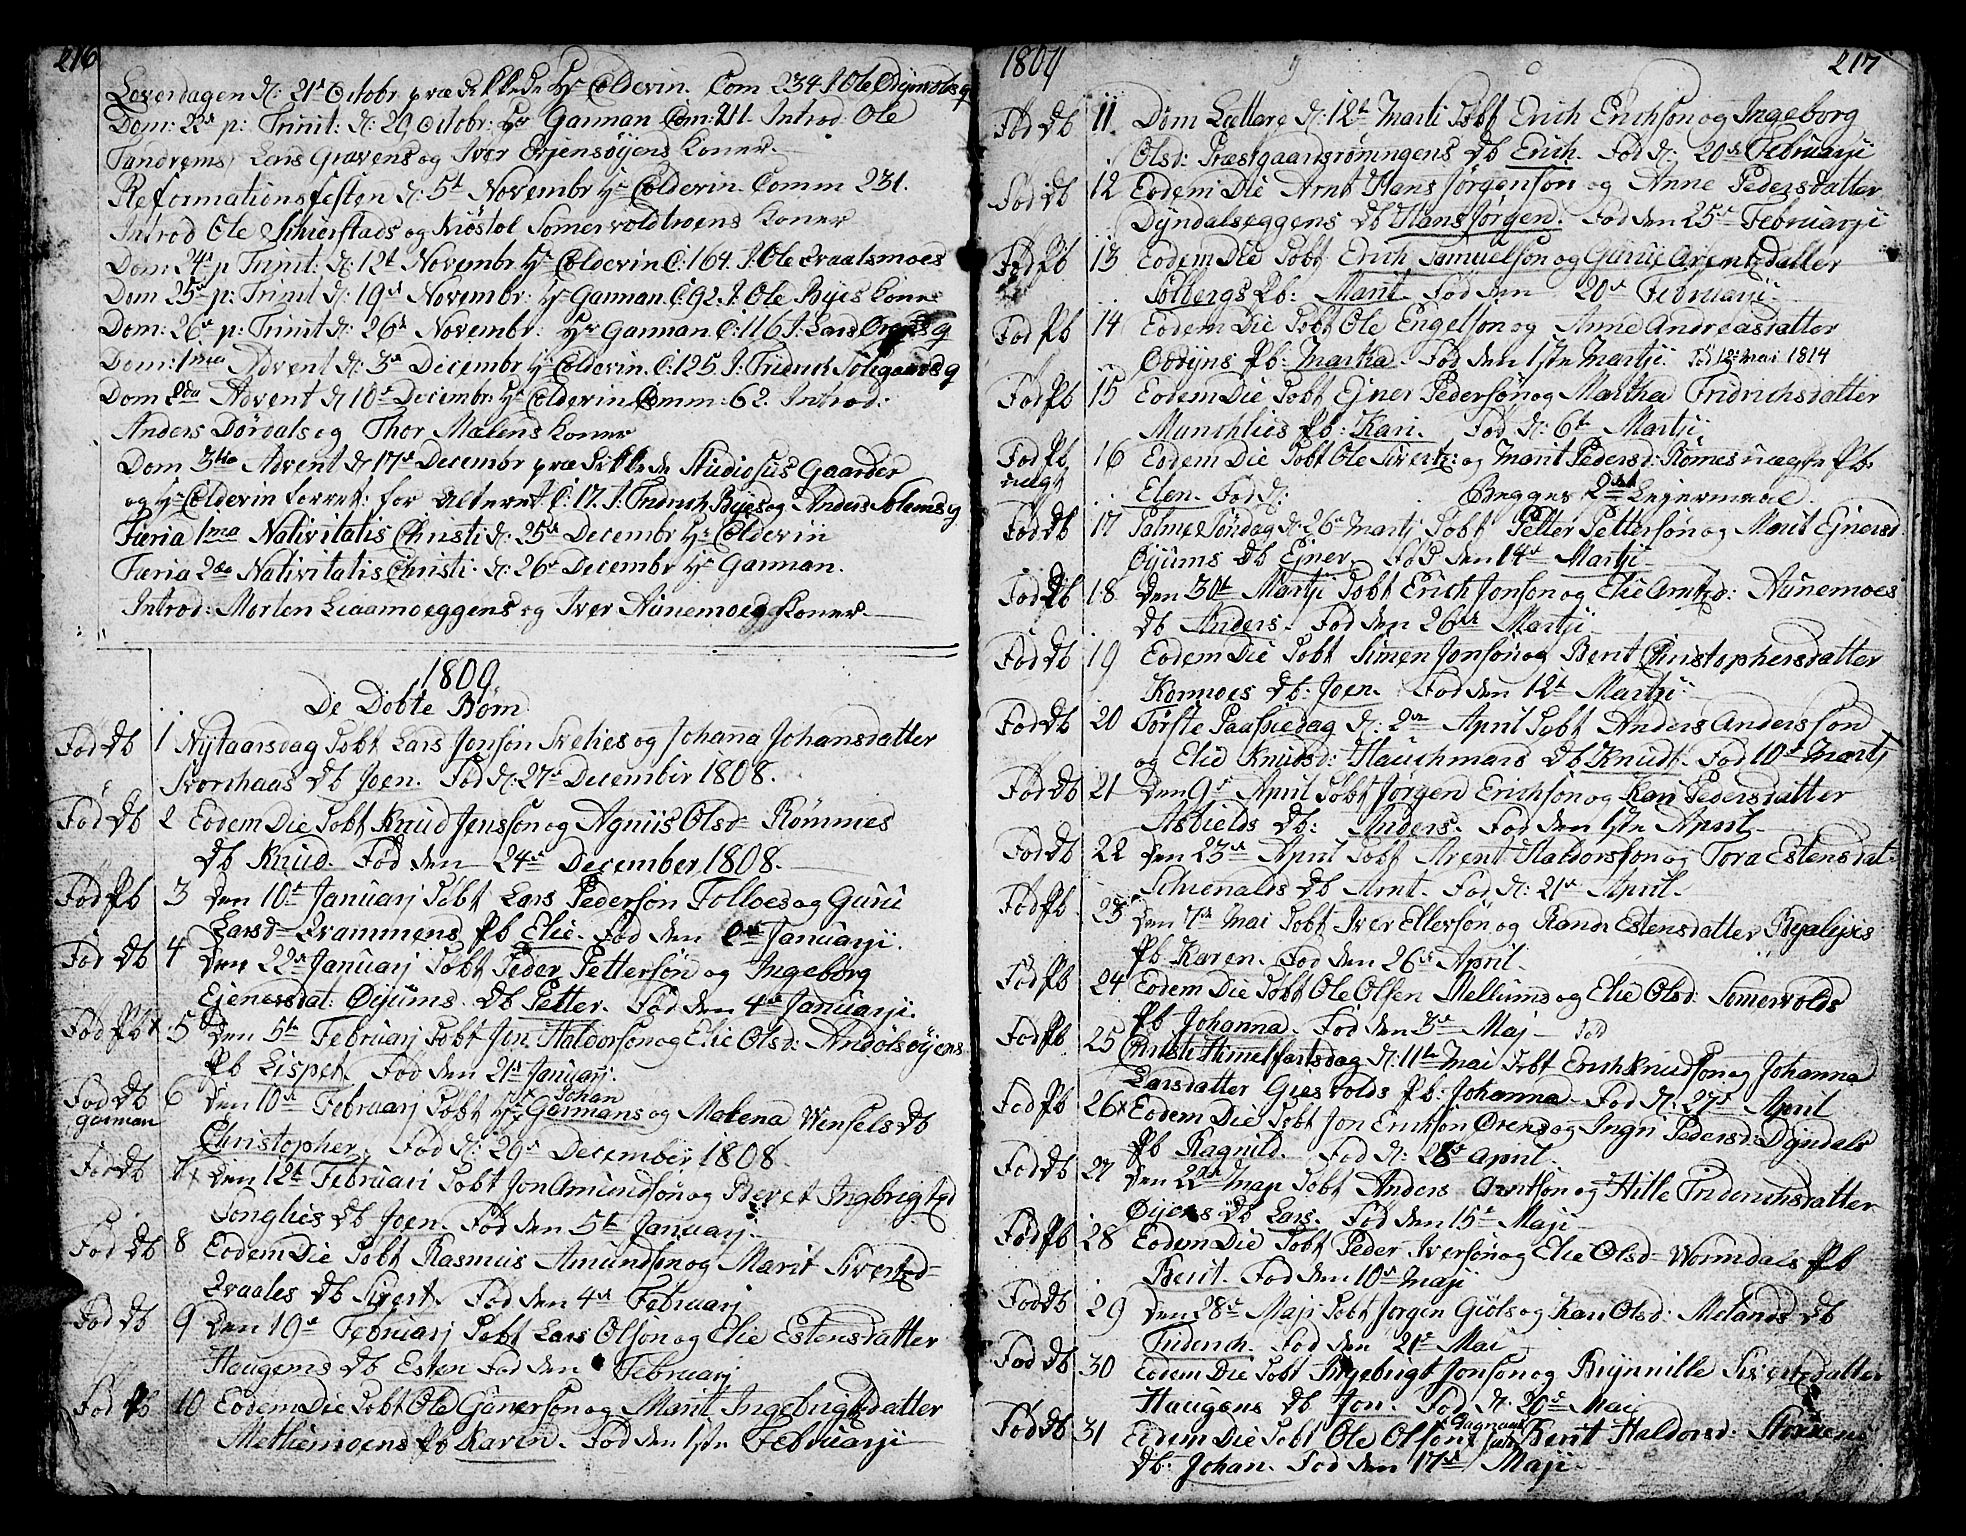 216
Løverdagen d: 21de Octobr prædikkede Hr Colderin. Com 234. I. Ole
Dom: 22de p: Trinit: d: 29 Octobr: Hr Garman Com: 211. Introd: Ole
Tandrems, Lars Gravens og Iver Koner
Reformationsfesten d: 5te Novembr Hr Colderin. Comm 231.
Introd Ole Schierstads og Kiøstol Somervoldtrøens Koner
Dom 24de p Trinit: d: 12te Novembr Hr Colderin C: 164. I. Ole Qvaalsmoes
Dom 25de p: Trinit d: 19de Novembr: Hr Garman. C: 92. I. Ole Byes Kone
Dom: 26de p: Trinit d: 26de Novembr: Hr Garman. C: 116 I: Lars
Dom: 1ma Advent d: 3de Decembr Hr Colderin. C: 125. I: Fridrich
Dom 2da Advent d 10de Decembr: Hr Colderin Comm: 62. Introd:
Anders Dørdals og Thor Mælens Koner
Dom 3tia Advent d 17de Decembr prædikkede Studiosus Gaarder
og Hr Colderin forret: for Alteret C: 17. I: Fridrich Byes og Anders
Færia 1ma Nativitatis Christi d: 25de Decembr Hr Colderin
Færia 2da Nativitatis Christi: d: 26de Decembr Hr Garman.
Introd: Morten Liaamoeggens og Iver Aunemoe Koner
1809
De Døbte Børn
Fød Db 1 Nytaarsdag Døbt Lars Jonsøn Svelies og Johana Johansdatter
Storchaas Db Joen. Fød d: 27de December 1808.
Fød Db 2 Eodem Die Døbt Knud Jensøn og Agniis Olsd: Rømmes
Db Knud. Fød den 24de December 1808.
Fød Pb 3 Den 10de Januarj Døbt Lars Pedersøn Folloes og Guru
Larsd: Qvammens Pb Elie. Fød den Januarji.
Fød Db 4 Den 22de Januarj Døbt Peder Pettersøn og Ingeborg
Ejenersdat: Øyums. Db Petter. Fød den 4de Januarji.
Fød Pb 5 Den 5te Februarj Døbt Jon Haldorsøn og Elie Olsd: Andølsøyens
Pb Lispet. Fød den 21de Januarj.
Fød Db Garman 6 Den 10de Februarj Døbt Hr Johan Garmans og Malena Wensels Db
Christopher. Fød d: 29de December 1808.
Fød Db 7 Den 12te Februari Døbt Jon Amundsøn og Beret Ingbrigtsd
Songlies Db Joen. Fød den 5te Januarj.
Fød Db 8 Eodem Die Døbt Rasmus Amundsøn og Marit Sivertsd
Qvaales Db Sivert. Fød den 4de Februarj
Fød Db 9 Den 19de Februarj Døbt Lars Olsøn og Elie Estensdatter
Haugens Db Esten Fød den Februarj
Fød Pb 10 Eodem Die Døbt Ole Gunersøn og Marit Ingebrigtsdatter
Methiemoens Pb Karen. Fød den 1ste Februarji
1809
217
Fød Db 11. Dom Lætare d: 12te Marti Døbt Erich Erichsøn og Ingeborg
Olsd: Præstgaardsrøningens Db Erich. Fød d: 20de Februarji
Fød Db 12 Eodem Die Døbt Hans Jørgensøn og Anne Pedersdatter
Dyndalseggens Db Hans Jørgen. Fød den 25de Februarji
Fød Pb 13 Eodem Die Døbt Erich Samuelsøn og Guru Arentsdatter
Solbergs Pb: Marit. Fød den 20de Februarij
Fød Pb 14 Eodem Die Døbt Ole Engelsøn og Anne Andreasdatter
Pb: Martha. Fød den 1ste Martji. Død 12te Mai 1814
Fød Pb 15 Eodem Die Døbt Ejner Pedersøn og Martha Fridrichsdatter
Munchlies Pb: Kari. Fød d: 6te Martji
Fød Pb uægt 16 Eodem Die Døbt Ole Sivertz: og Marit Pedersd: Rømes uægte Pb.
Elen. Fød d: Begges 2det Lejermaal.
Fød Db 17 Palme Søndag d: 26de Martj Døbt Petter Pettersøn og Marit Ejnersd
Øyums Db Ejner. Fød den 14de Martji
Fød Db 18 Den 30te Martji Døbt Erich Jonsøn og Elie Arntsd: Aunemoes
Db Anders. Fød den 26de Martji
Fød Db 19 Eodem Die Døbt Simen Jonsøn og Berit Christophersdatter
Kormoes Db: Joen. Fød den 12te Martji
Fød Db 20 Første Paaskedag d: 2den April Døbt Anders Anderssøn
og Elie Knudsd: Hauchmars Db Knudt. Fød 10de Martj
Fød Db 21 Den 9de April Døbt Jørgen Erichsøn og Kari Pedersdatter
Asbields Db: Anders. Fød den 1ste April
Fød Db 22 Den 23de April Døbt Arent Haldorsøn og Tora Estensdat:
Schienalds Db Arnt. Fød d: 21de April.
Fød Pb 23 Den 7de Mai Døbt Iver Ellefsøn og Randi Estensdatter
Pb Karen. Fød den 26de April.
Fød Pb 24 Eodem Die Døbt Ole Olsen Mellums og Elie Olsd: Somervolds
Pb Johanna. Fød den 3de Maj Død
Fød Pb 25 Christi Himmelfartsdag d: 11te Mai Døbt Erich Knudsøn og Johanna
Larsdatter Giesvolds Pb: Johanna. Fød d: 27de April
Fød Pb 26 Eodem Die Døbt Jon Erichsøn Ørens og Ingri Pedersd: Dyndals
Pb Ragnild. Fød d: 28de April.
Fød Db 27 Den 22de Maji Døbt Anders Arntsøn og Hille Friderichsdatter
Øyens Db Lars. Fød den 15de Maji
Fød Pb 28 Eodem Die Døbt Peder Iversøn og Elie Olsd: Wormdals Pb
Berit. Fød den 10de Maji
Fød Db 29 Den 28de Maji Døbt Jørgen Giøls og Kari Olsd: Melands Db
Fridrich. Fød den 21de Mai
Fød Db 30 Eodem Die Døbt Ingebrigt Jonsøn og Brynnille Sivertsdatter
Haugens Db Jon. Fød d: 20de Mai
Fød Db 31 Eodem Die Døbt Ole Olsøn og Berit Haldorsd:
Db: Johan. Fød den 17de Maji